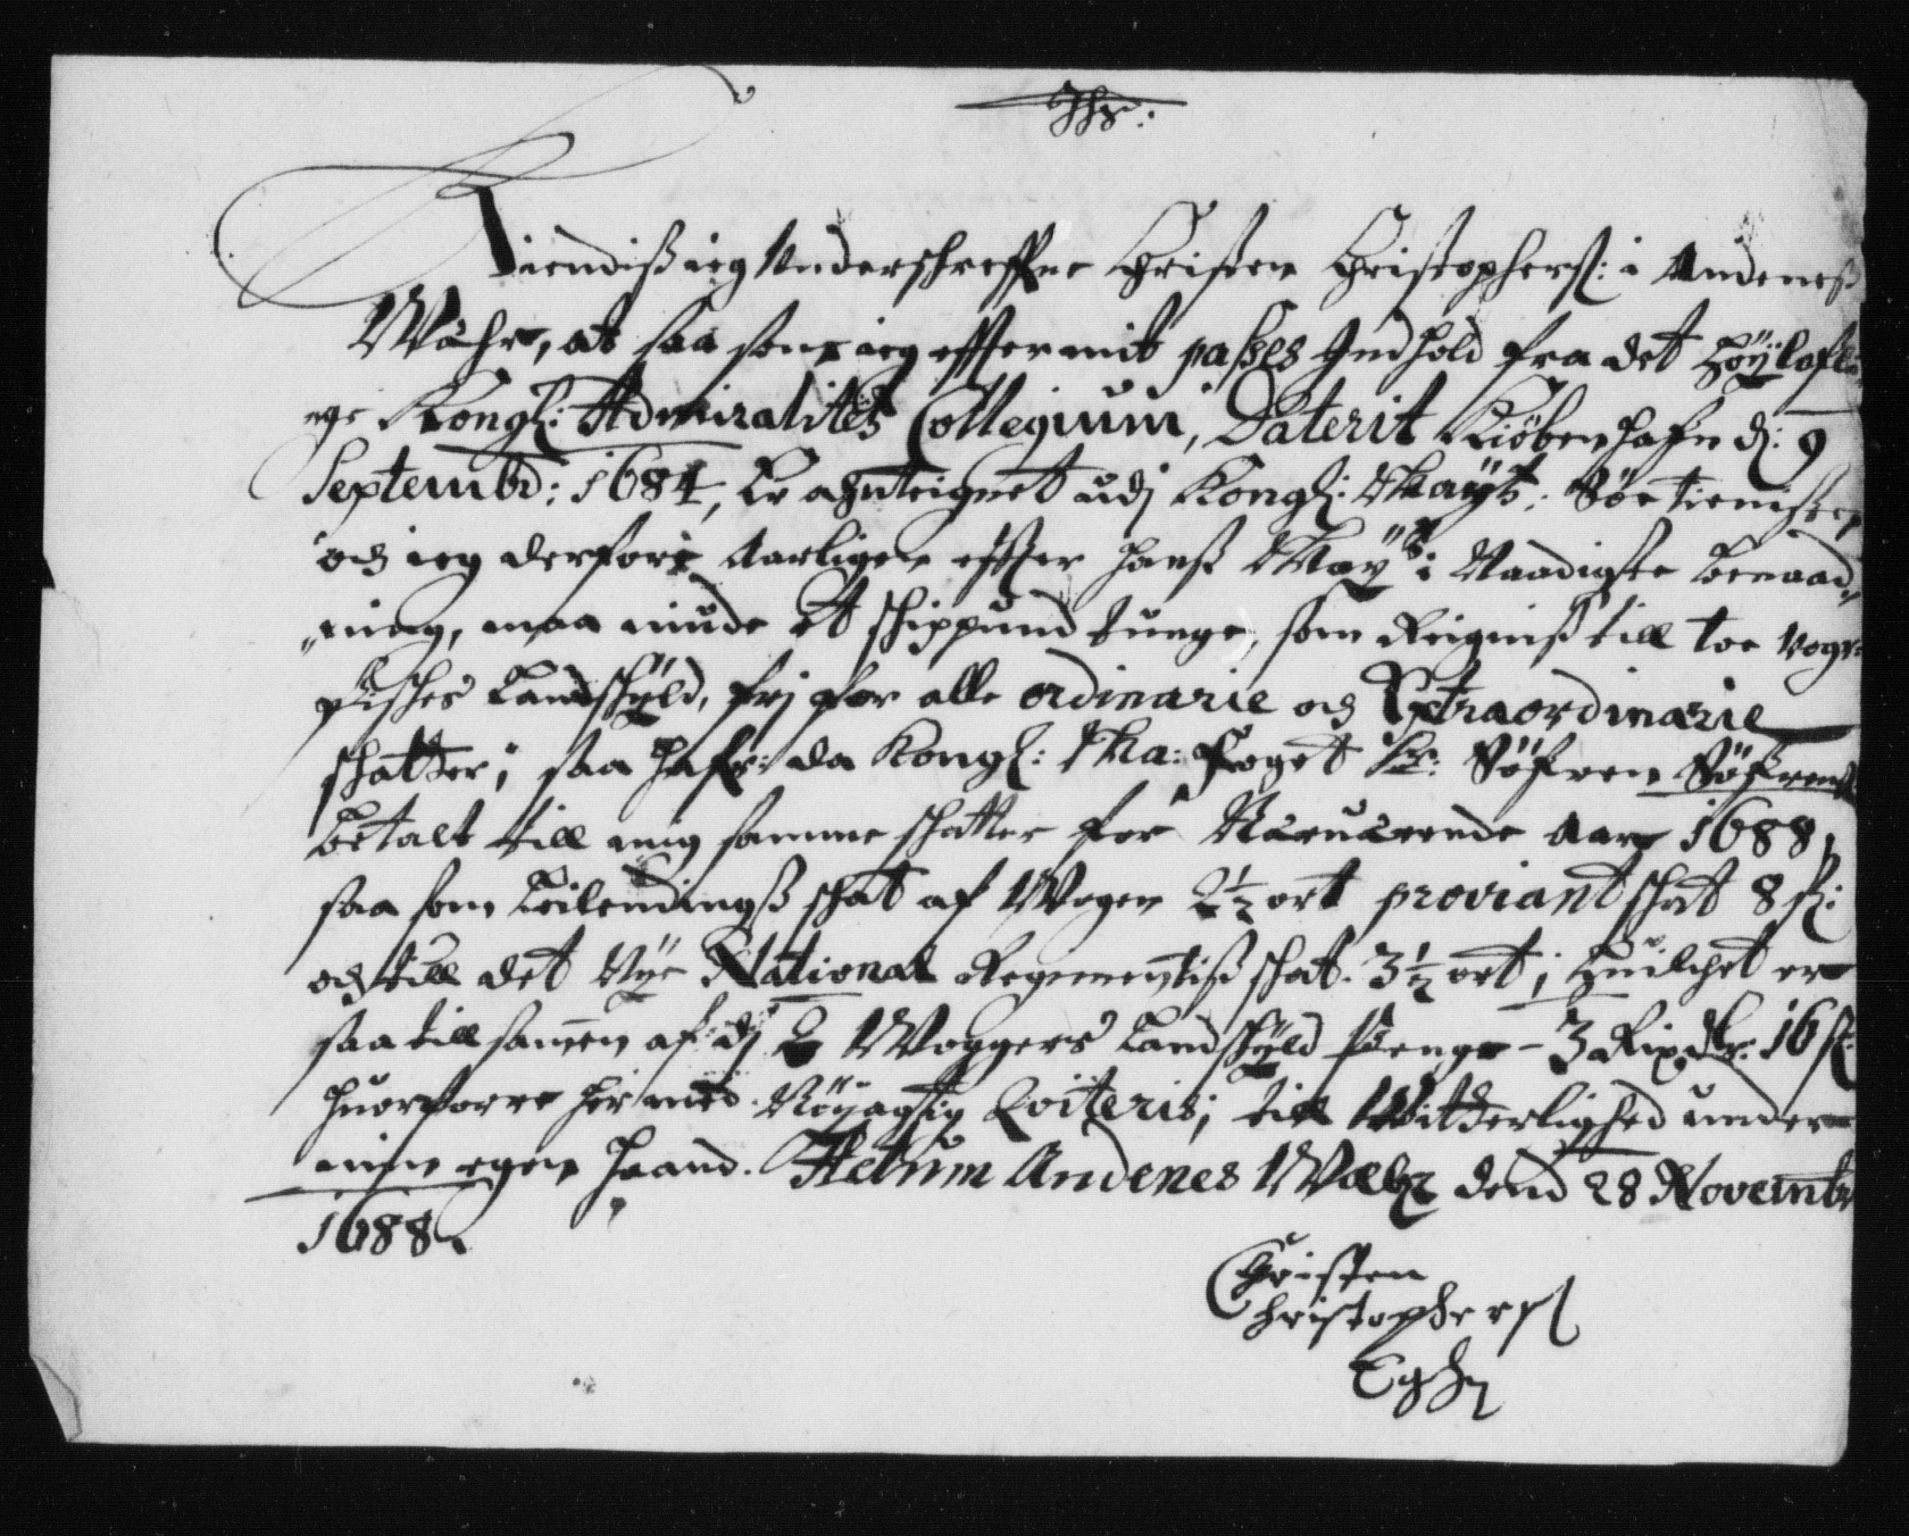 Jhs:
Kiendiß ieg Underschreffne Christen Christophers: i Andeneß
Wæhr, at saa som ieg effter mit passes Indhold fra det Höÿlofli
ege Kongl: Admiralitets Collegium, Daterit Kiöbenhafn d: 9
Septembr: 1684, Er ahnteignet udj Kongl: Maÿts: Söe tieniste
och ieg derfore Aarligen effter hans Maÿts: Naadigste benaad,,
,,ning, maa niude Et schippund tunge, som Reigniß till toe Voger
fisches Landschÿld, frj for alle ordinarie och Extraordinarie
schatter; saa hafr: da Kongl: Ma: Foget Sr: Söfren Söfrens:
betalt till mig samme schatter for Nærværende Aar 1688,
saa som Leilendingß schat af Wogen 2½ ort proviant schat 8 s:
och till det Nÿe National Regimentiß schat. 3½ ort; Huilchet er
saa till samen af dj 2 Woggers Landschÿld Penge - 3 Rixdlr. 16 s:
huorforre hermed Nöÿagtig Qviteris; till Witterlighed under
min egen Haand. Actum Andenes Wæhr dend 28 Novembr
1688.
Christen
Christophers
Eghd